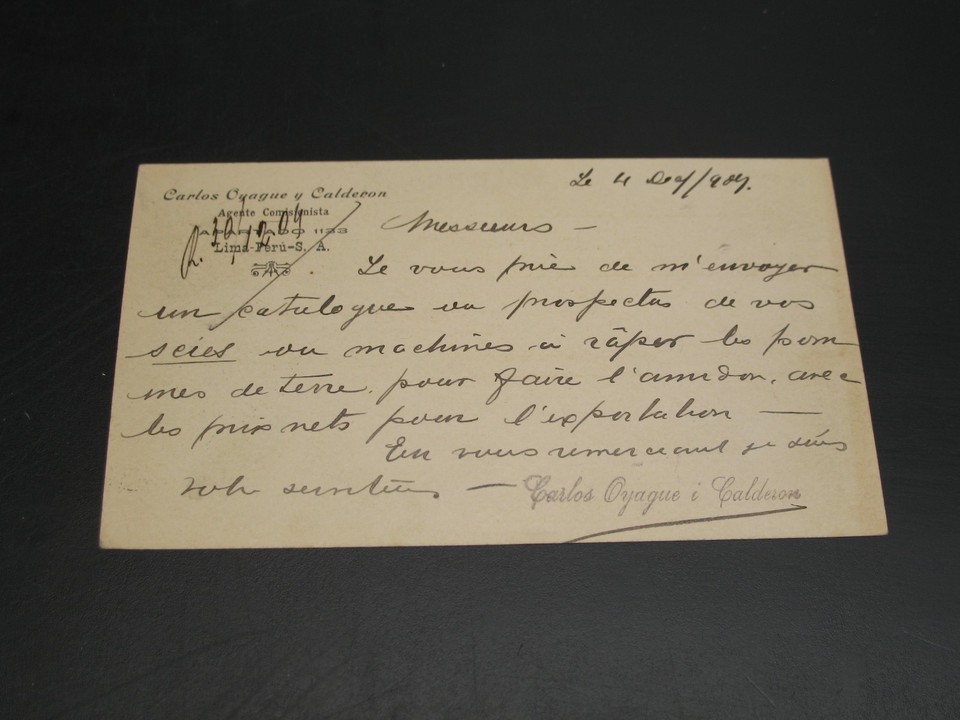 Carlos Oyague y Calderon
Agente Comisionista
APARTADO 1123
Lima-Perú-S. A.
R. 30/12 09
Le 4 Dec/909.
Messieurs —
Je vous prie de m'envoyer
un catalogue ou prospectus de vos
scies ou machines à râper les pom
mes de terre, pour faire l'amidon, avec
les prix nets pour l'exportation —
En vous remerciant je suis
votre serviteur —
Carlos Oyague i Calderon